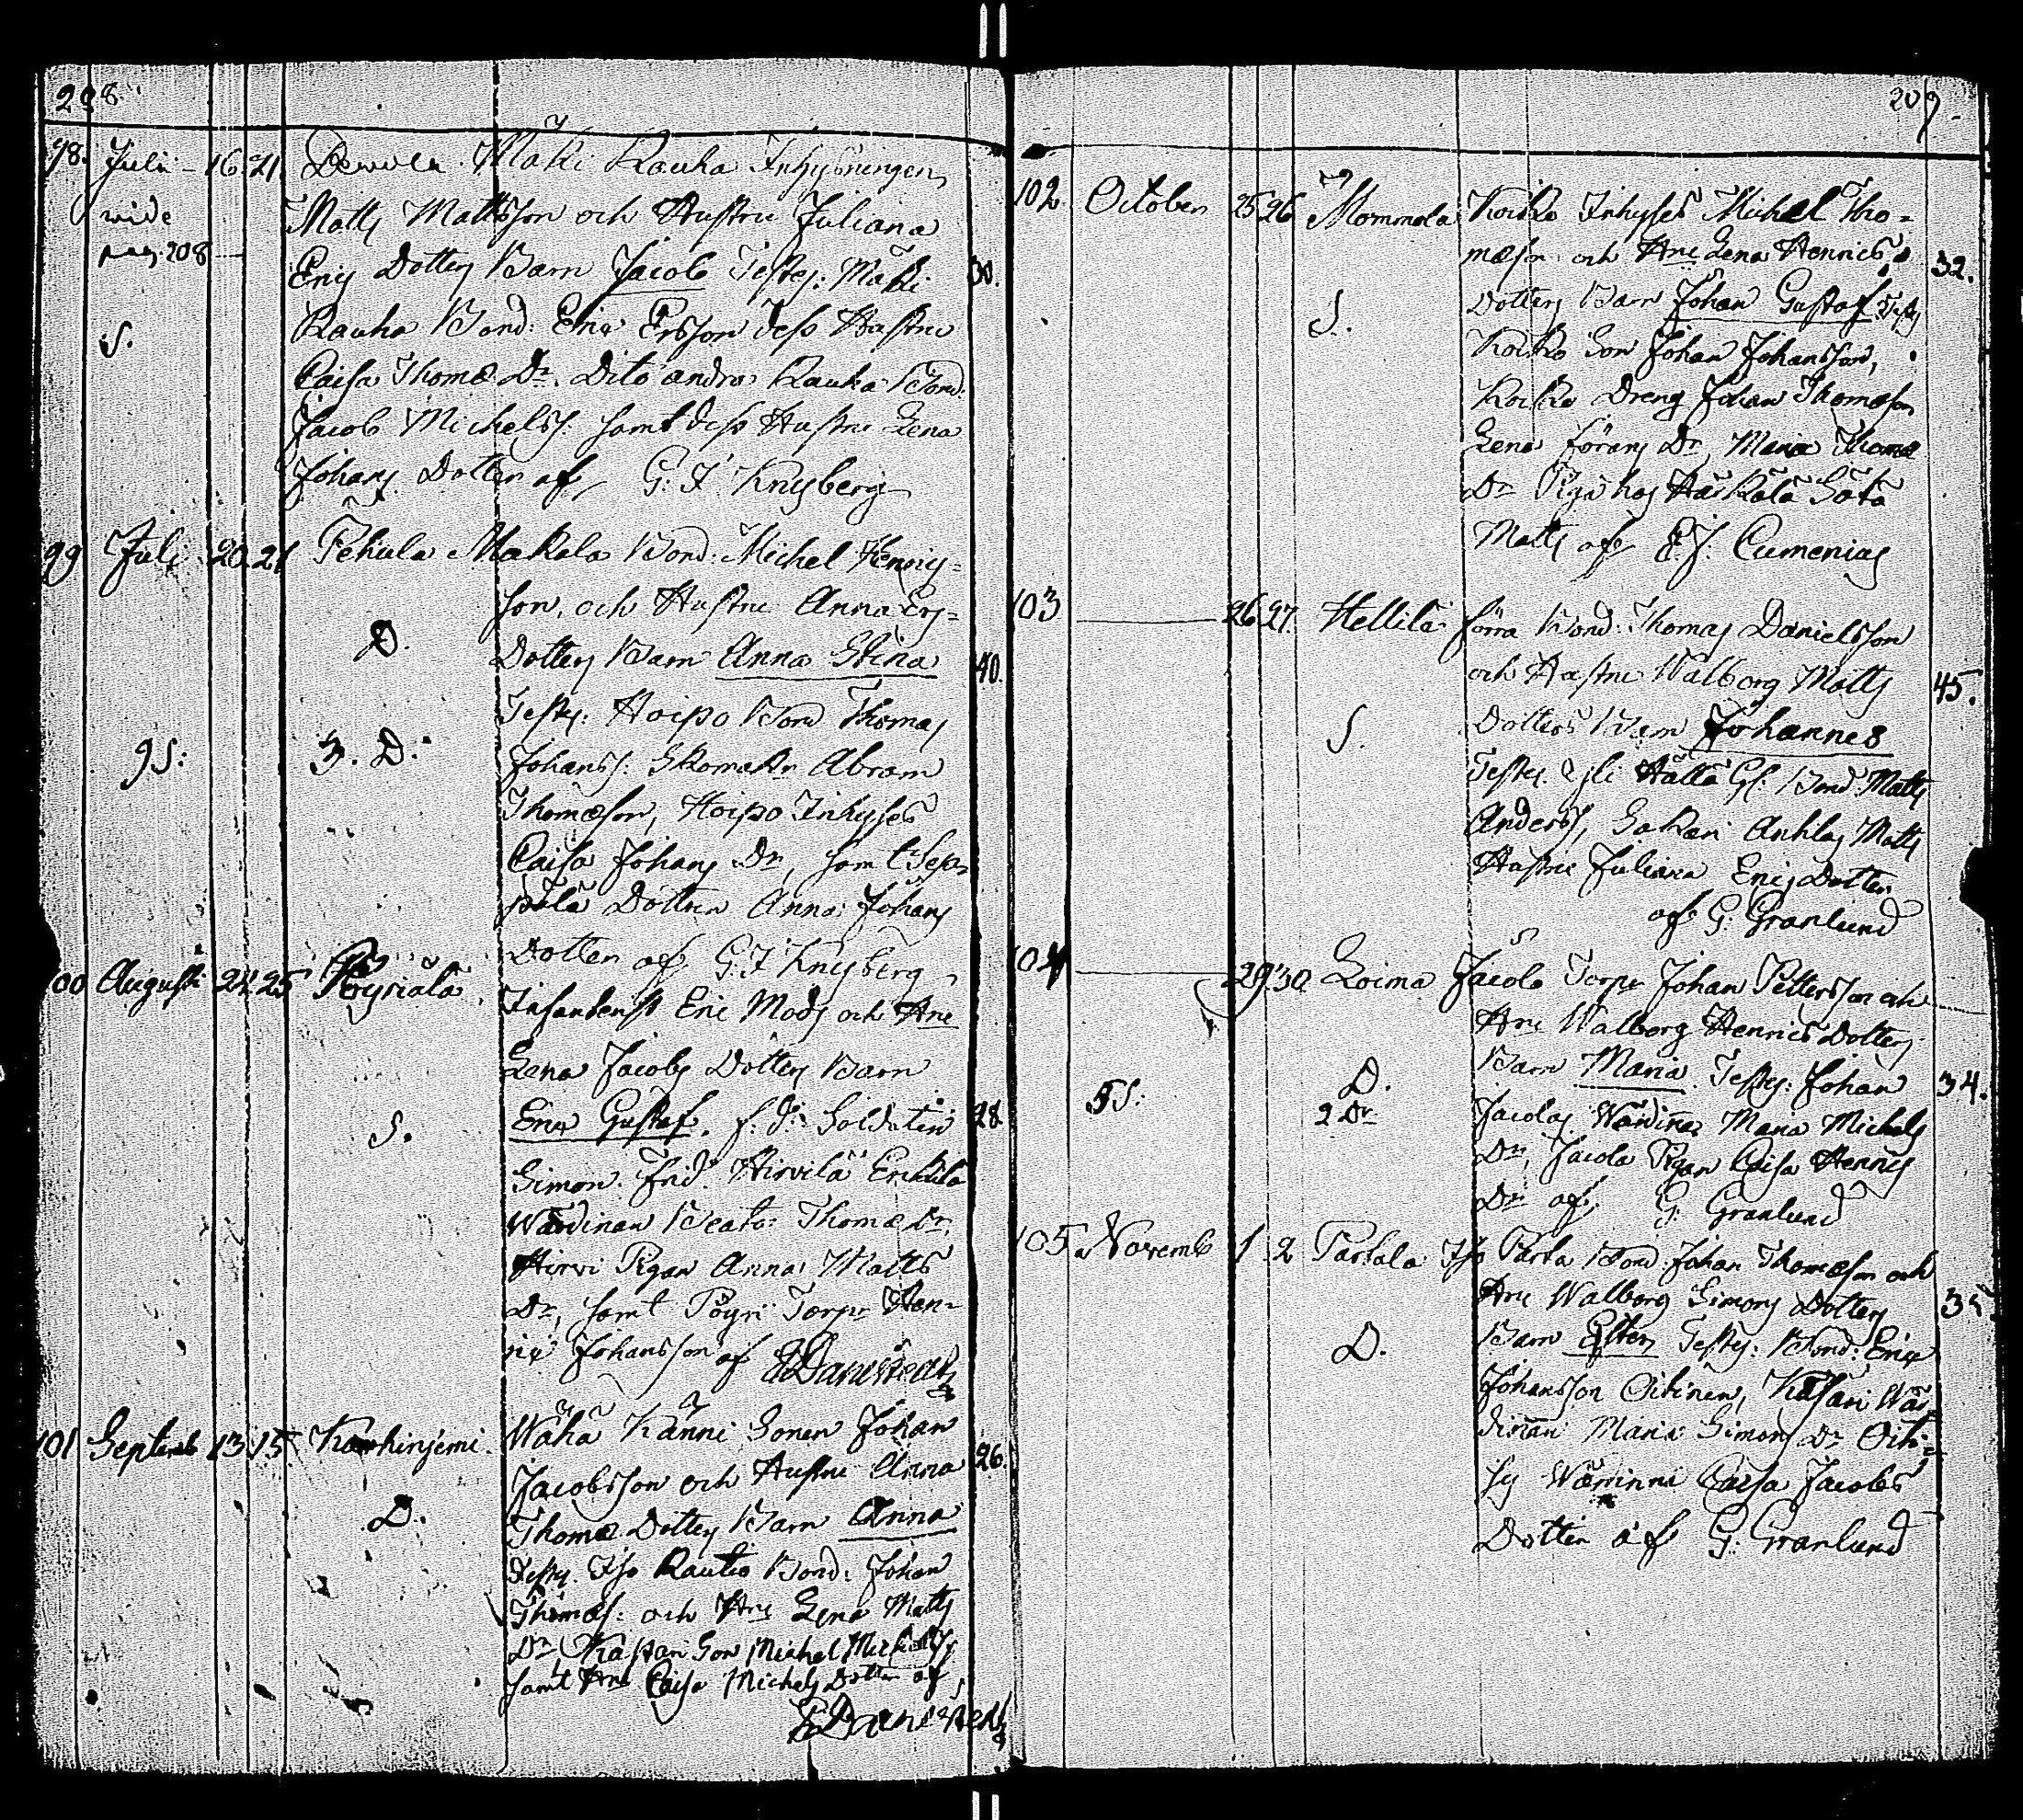 208
98. Juli 16. 21. Lewula Mäki Rauha Inhysningen
wide
pag. 208
Matts Mattsson och Hustru Juliana
Erics Dotters Barn Jacob Testes: Mäki 30.
S.
Rauha Bond: Eric Ersson dess Hustru
Caisa Thomæ Dr. Dito andra Rauha Bond:
Jacob Michelss: samt dess Hustru Lena
Johans Dotter af G. F. Knyberg
99 Juli 20. 21 Tehiula Makela Bond: Michel Henrics-
son, och Hustru Anna Ers-
D.
Dotters Barn Anna Stina 40.
Testes: Hoipo Bond Thomas
9 S: 3. D.
Johanss: Skomakr Abram
Thomæson, Hoipo Inhyses
Caisa Johans Dr, samt Sep-
pälä Dottren Anna Johans
Dotter af G. F. Knyberg
100 August 24. 25 Pöyriälä
Eric Mods och Hru
Lena Jacobs Dotters Barn
Eric Gustaf. f. d. Soldaten 28.
S.
Simon Frid. Hirvilä Erkkilä
Wärdinan Beata Thomæ Dr
Hirvi Pigan Anna Matts
Dr, samt Pöyri Torpr Hen-
ric Johansson af
101 Septemb 13. 15. Korhinjemi. Wähä Känni Sonen Johan
Jacobsson och Hustru Anna 26.
D.
Thomæ Dotters Barn Anna
Testes. Iso Rautio Bond: Johan
Thomæs: och Hru Lena Matts
Dr Kaspari Son Michel Michelss
samt Hru Caisa Michels Dotter af
209
102 October 25 26 Mommola Koiko Inhyses Michel Tho-
mæson och Hru Lena Henrics 32.
S.
Dotters Barn Johan Gustaf Testes
Koiko Son Johan Johansson,
Koiko Dreng Johan Thomæson
Lena Görans Dr, Maria Thomæ
Dr Piga hos Häikälä Sätä
Matts af E. J. Cumenius
103 26. 27. Hellilä förra Bond: Thomas Danielsson
och Hustru Walborg Matts 45.
S.
Dotters Barn Johannes
Testes. Yli Hättä Gl: Bond: Matts
Anderss, Sakari Anhlas Matts
Hustru Juliana Erics Dotter
af G: Granlund
104 29. 30. Loima Jacola Torpr Johan Pettersson och
Hru Walborg Henrics Dotters
5 S: D. 2 Dr
Barn Maria. Testes: Johan 34.
Jacolas Wärdina Maria Michels
Dr, Jacola Pigan Caisa Henrics
Dr af G: Granlund
105 Novemb 1. 2 Partala Iso Parta Bond: Johan Thomæson och
Hru Walborg Simons Dotters 35
D.
Barn Ester Testes: Bond: Eric
Johansson Oitinen, Kasari Wär-
dinan Maria Simons Dr Oiti-
Caisa Jacobs
Dotter af G: Granlund